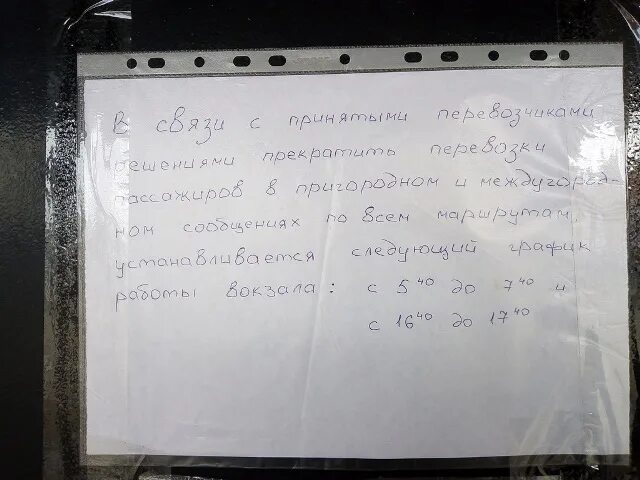 В связи с принятыми перевозчиками
решениями прекратить перевозки
пассажиров в пригородном и междугород-
ном сообщениях по всем маршрутам,
устанавливается следующий график
работы вокзала: с 5⁴⁰ до 7⁴⁰ и
с 16⁴⁰ до 17⁴⁰